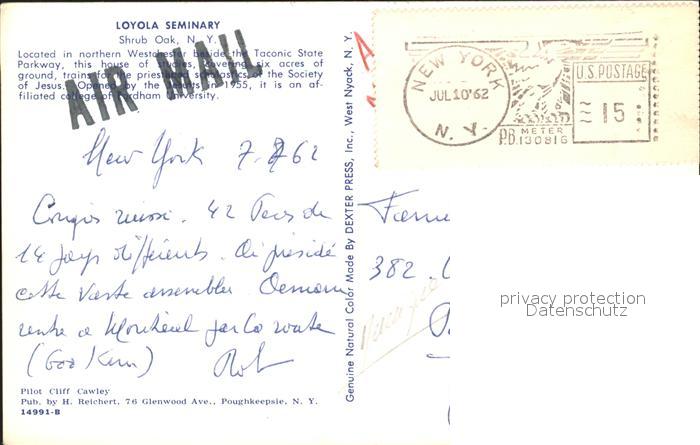 LOYOLA SEMINARY
Shrub Oak, N. Y.
Located in northern Westchester beside the Taconic State
Parkway, this house of studies, covering six acres of
ground, trains for the priesthood scholastics of the Society
of Jesus. Opened by the Jesuits in 1955, it is an af-
filiated college of Fordham University.
AIR MAIL
New York 7. 62
Congrès réussi. 42 Pères de
14 pays différents. Ai présidé
cette vaste assemblée. Demain
rentre à Montréal par la route
(600 Km)
Rob
Pilot Cliff Cawley
Pub. by H. Reichert, 76 Glenwood Ave., Poughkeepsie, N. Y.
14991-B
Genuine Natural Color Made By DEXTER PRESS, Inc., West Nyack, N. Y.
NEW YORK
JUL 10 '62
N. Y.
U.S. POSTAGE
15
P.B. METER
130816
382
privacy protection
Datenschutz